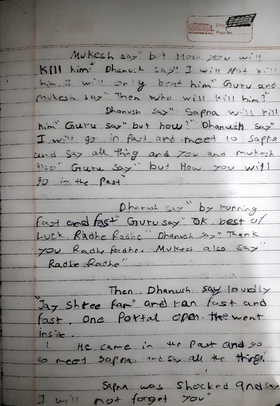 Mukesh say" but How you will
Kill him" Dhanush say" I will Not kill
him. I will only beat him" Guru and
mukesh say" Then who will kill him?"
Dhanush say" Sapna will kill
him" Guru say" but how?" Dhanush say"
I will go in Past and meet to Sapna
and say all thing and you and mukesh
also" Guru say" but How you will
go in the past"
Dhanush say" by running
fast and fast" Guru say" OK. best of
Luck. Radhe Radhe" Dhanush say" Thank
you Radhe Radhe. Mukesh also say"
Radhe Radhe"
Then Dhanush say loudly
"Jay Shree Ram" and ran fast and
fast. One Portal open. He went
inside.
He came in the Past and go
to meet Sapna. and say all the thing.
Sapna was shocked and say
I will not forget you"